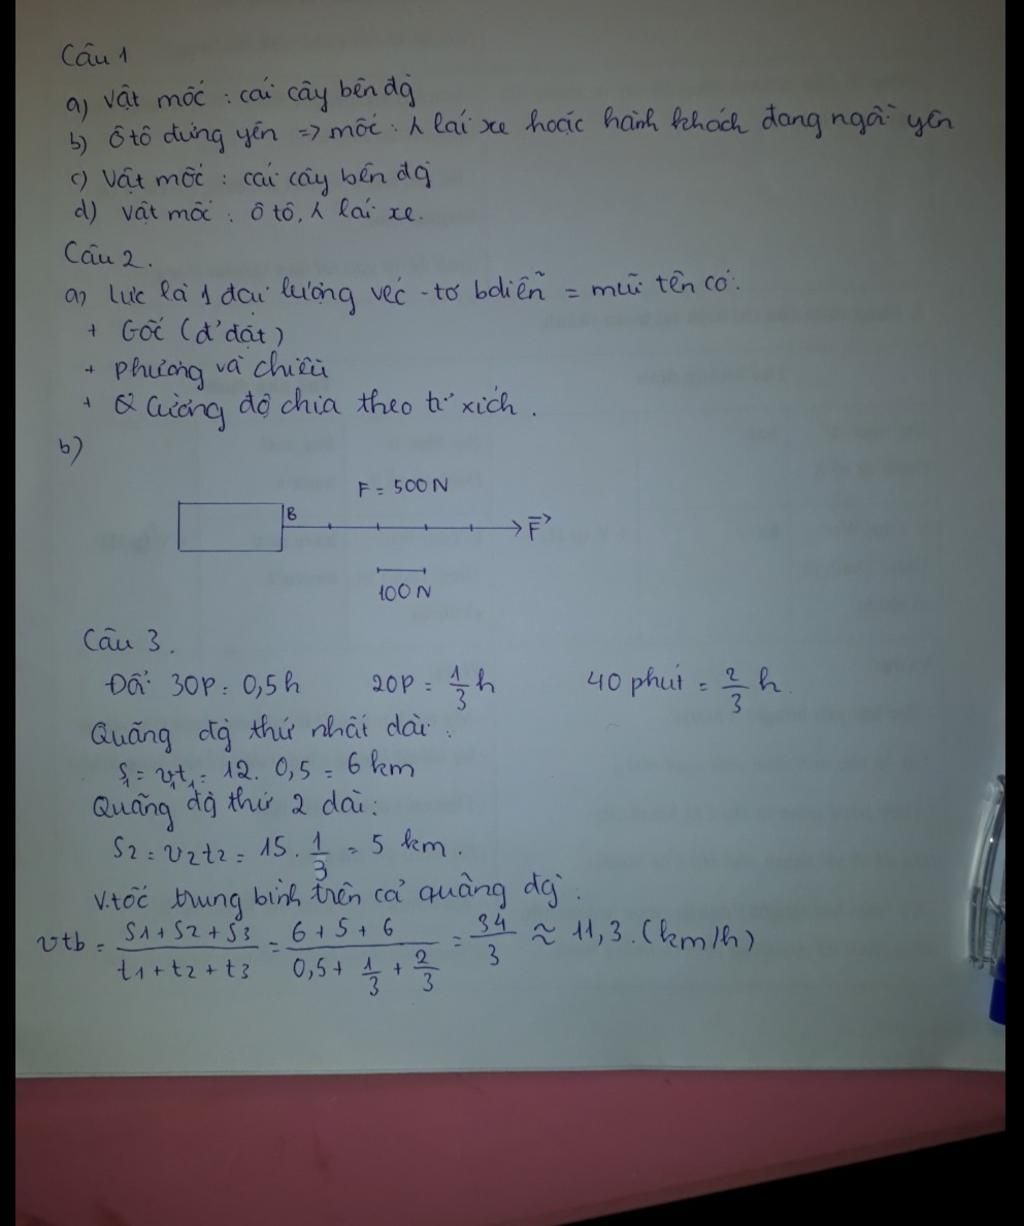 Câu 1
a) Vật mốc : cái cây bên đg̀
b) Ô tô đứng yên => mốc : λ lái xe hoặc hành khách đang ngồi yên
c) Vật mốc : cái cây bên đg̀
d) Vật mốc : ô tô, λ lái xe.
Câu 2.
a) Lực là 1 đại lượng véc-tơ bdiễn = mũi tên có:
+ Gốc (đ' đặt)
+ Phương và chiều
+ Cường độ chia theo tỉ xích.
b)
F = 500N
B
F→
100N
Câu 3.
Đổi 30p = 0,5h 20p = 1/3 h 40 phút = 2/3 h.
Quãng đg̀ thứ nhất dài:
S1 = v1t1 = 12. 0,5 = 6 km
Quãng đg̀ thứ 2 dài:
S2 = v2t2 = 15. 1/3 = 5 km.
V.tốc trung bình trên cả quãng đg̀:
vtb = (S1 + S2 + S3)/(t1 + t2 + t3) = (6 + 5 + 6)/(0,5 + 1/3 + 2/3) = 34/3 ≈ 11,3. (km/h)